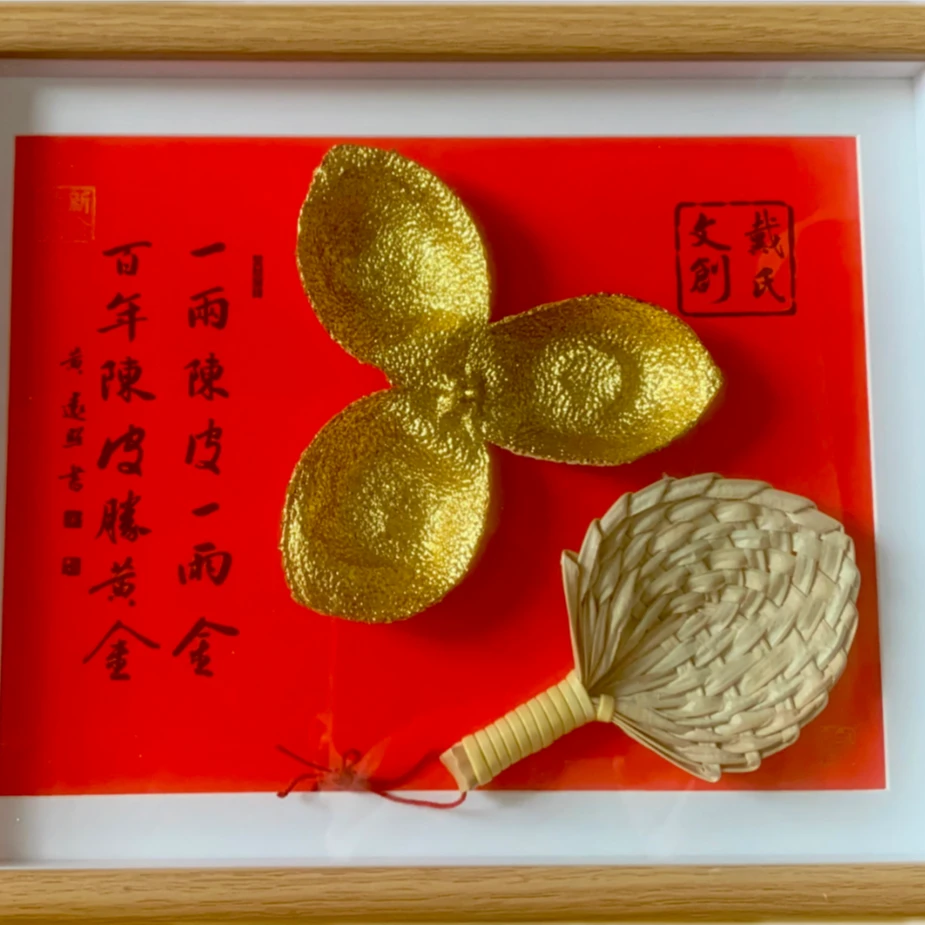 戴氏
文創
一兩陳皮一兩金
百年陳皮勝黃金
黃遠群書
新